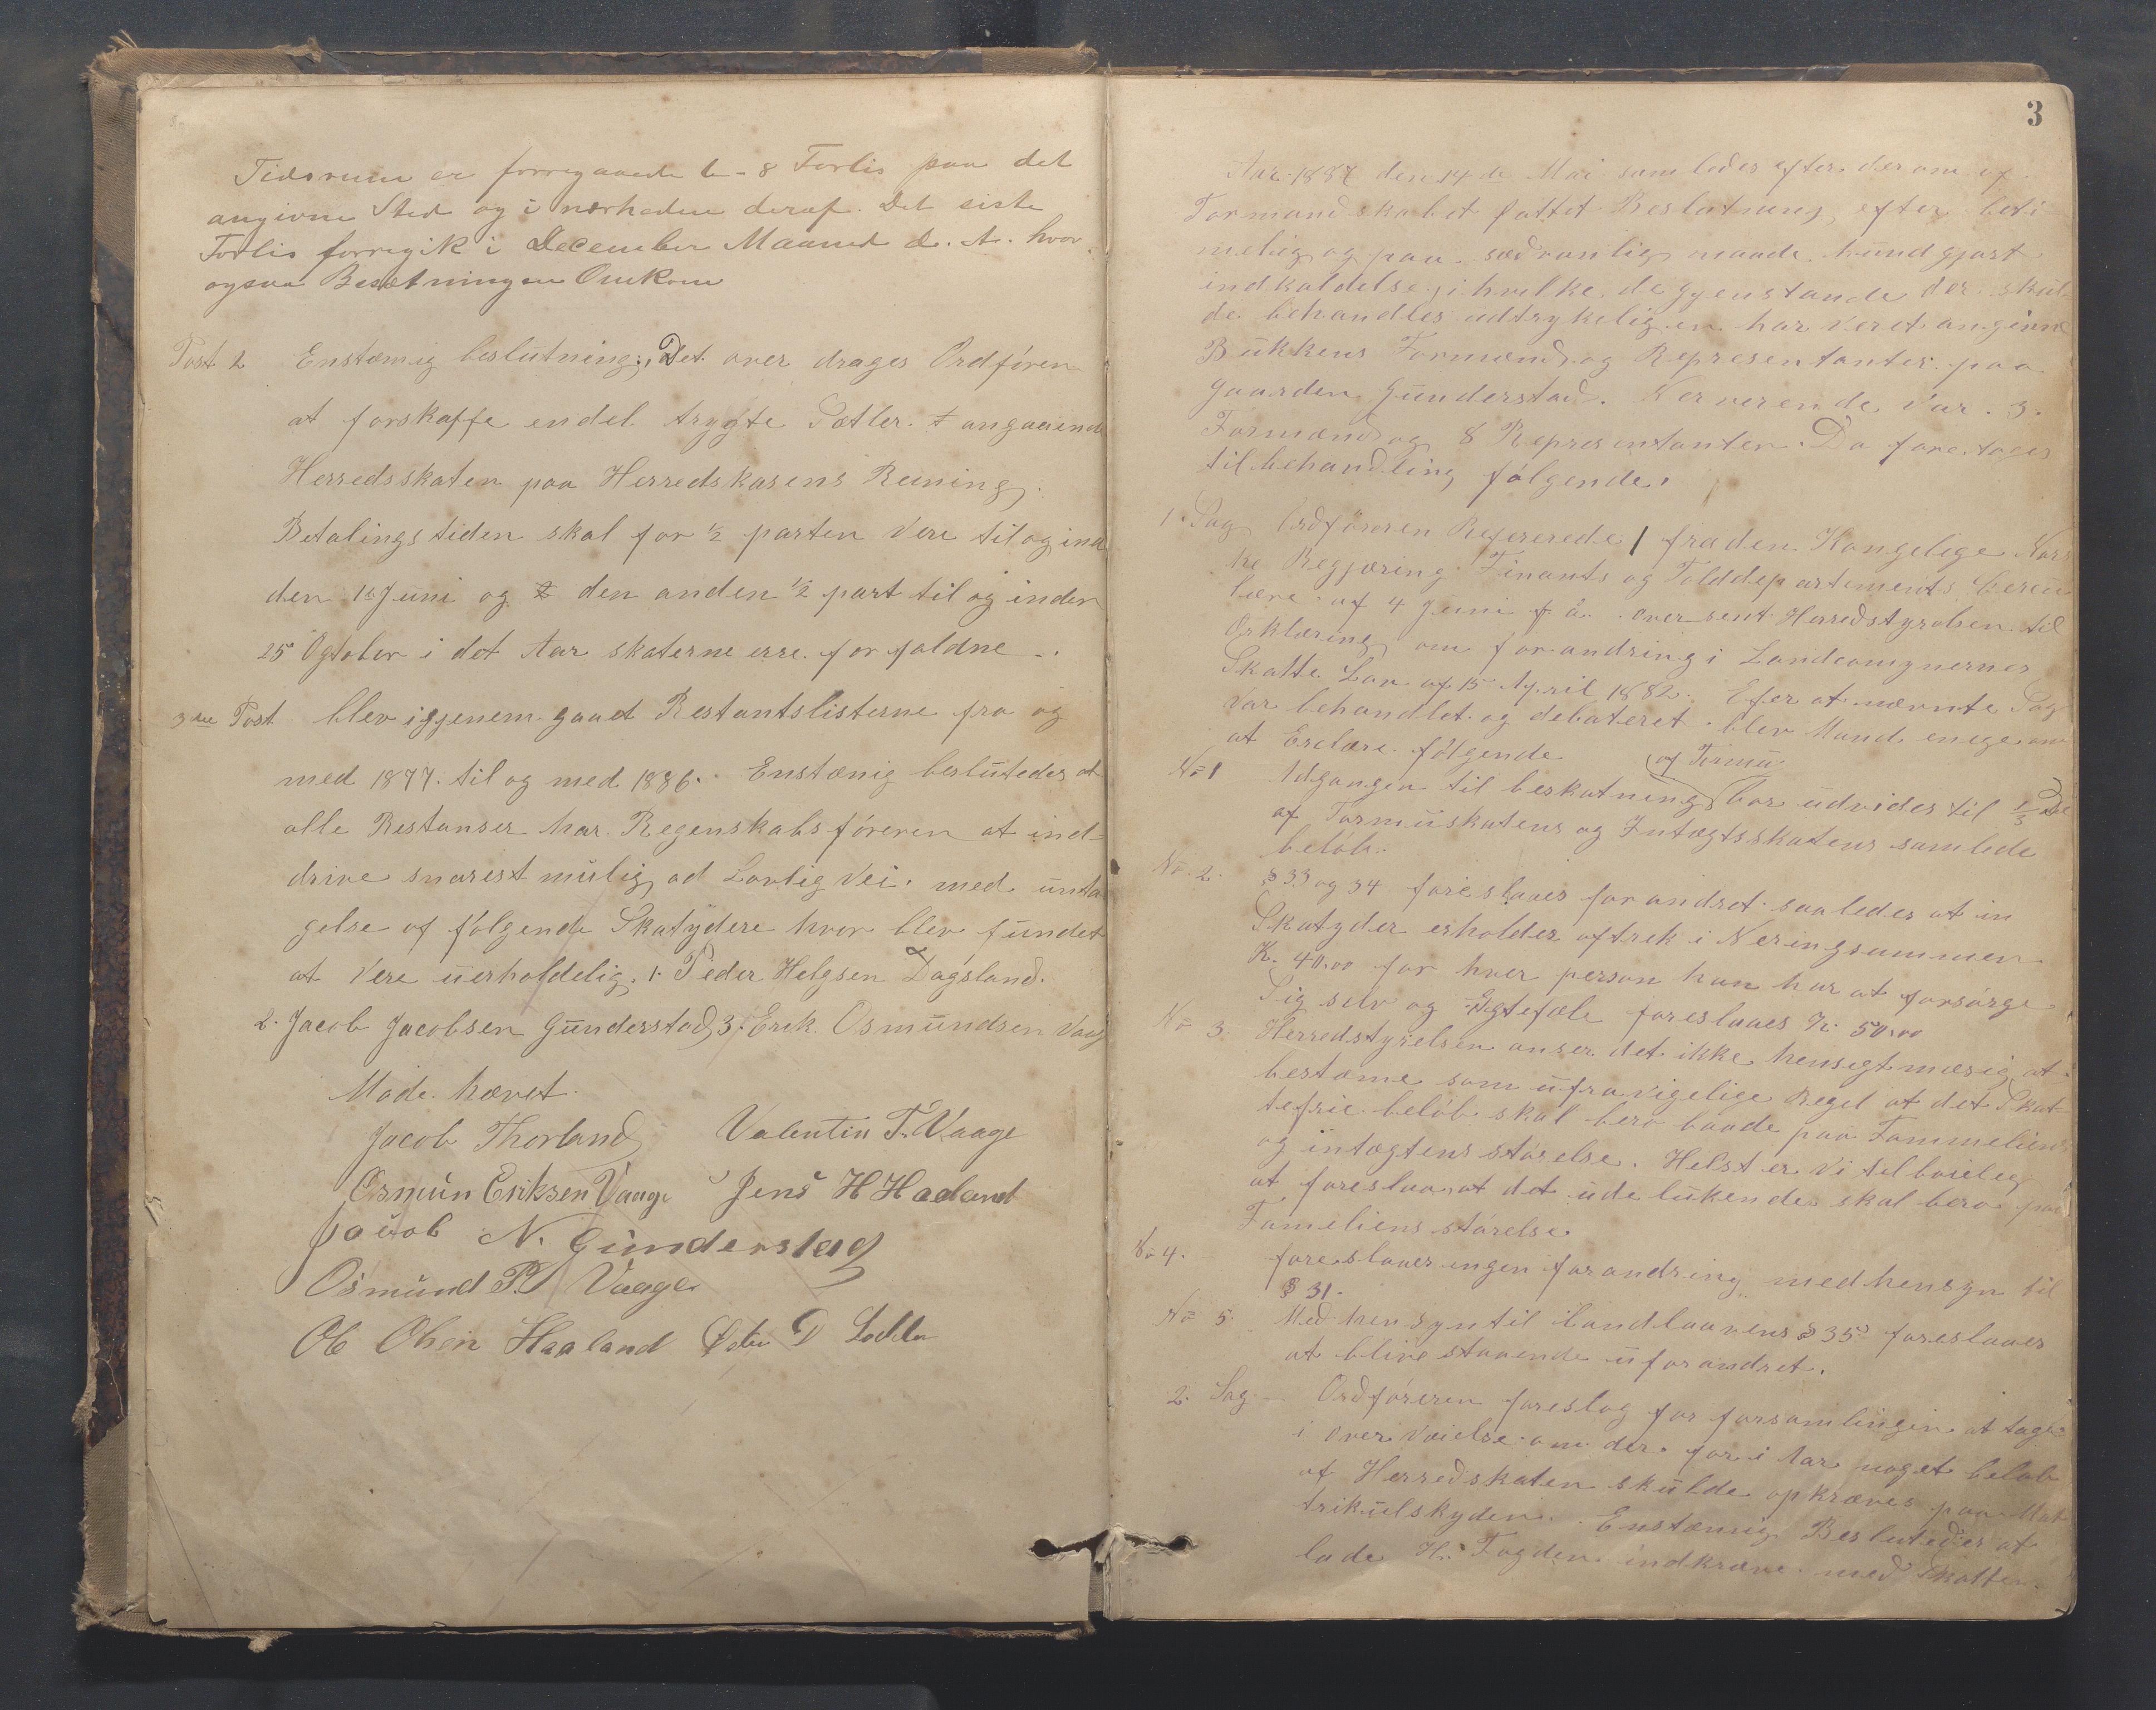 Tidsrum er forregaaede 6-8 Forlis paa det
angivne Sted og i nærheden deraf. Det siste
Forlis forregik i December Maaned d. A. hvor
ogsaa Besætningen Omkom
Post 2 Enstæmig beslutning; Det over drages Ordføren
at forskaffe endel trygte Sætler angaaende
Herredsskaten paa Herredskasens Reining.
Betalings tiden skal for ½ parten Vere til og inden
den 1ste Juni og den anden ½ part til og inden
25 Ogtober i det Aar skaterne erre forfaldne
3die Post blev igjenem gaaet Restantslisterne fra og
med 1877 til og med 1886. Enstæmig beslutedes at
alle Restanser har Regenskabsføreren at ind-
drive snarest mulig ad Lovlig Vei. med unta
gelse af følgende Skatydere hvor blev fundet
at Vere uerholdelig. 1. Peder Helgsen Dagsland.
2. Jacob Jacobsen Gunderstad, 3. Erik Osmundsen Vaag
Møde hævet.
Jacob Thorland Valentin T. Vaage
Osmun Eriksen Vaage Jens H Haaland
Jacob N. Gunderstad
Osmund P. Vaage
Ole Olsen Haaland Peder D
3
Aar 1887 den 14de Mai samledes efter derom af
Formandskabet fattet Beslutning, efter beti
melig og paa sædvanlig maade kundgjort
indkaldelse, i hvilke de gjenstande der skul
de behandles udtrykkeligen har Veret angivne
Bukkens Formænd og Representanter paa
Gaarden Gunderstad. Nerverende Var 3.
Formænd og 8 Representanter. Da foretoges
til behandling følgende.
1. Sag Ordføreren Refererede fra den Kongelige Nors
ke Regjæring Finants og Tolddepartements
af 4 Juni f. a. oversent Herredstyrelsen til
Erklæring om forandring i Landcomynernes
Skatte Lov af 15 April 1882. Efer at nævnte Sag
Var behandlet og debateret blev Mand enige om
at Erclære følgende
No 1 Adgangen til beskatning af Formu bør udvides til 1/3 Del
af Formuskatens og Intægtsskatens samlede
beløb.
No. 2. § 33 og 34 foreslaaes forandret saaledes at en
Skatyder erholder aftrek i Neringsummen
K. 40.00 for hver person han har at forsørge.
Sig selv og Egtefæle foreslaaes K. 50.00
No 3. Herredstyrelsen anser det ikke hensegtmæsig at
bestæme som ufravigelige Regel at det Skat-
tefrie beløb skal bero baade paa Fammeliens
og intægtens størelse. Helst er Vi tilbøielig
at foreslaa, at det udelukende skal bero paa
Fameliens størelse.
No 4. foreslaaes ingen forandring med hensyn til
§ 31.
No 5. Med hensyn til Landlaavens § 35 foreslaaes
at blive staaende uforandret.
2. Sag Ordføreren foreslog for forsamlingen at tage
i over Veielse om der for i Aar noget beløb
af Herredskaten skulde opkræves paa Mat
trikulskyden. Enstæmig Beslutedes at
lade Hr. Fogden indkræve med Skatten